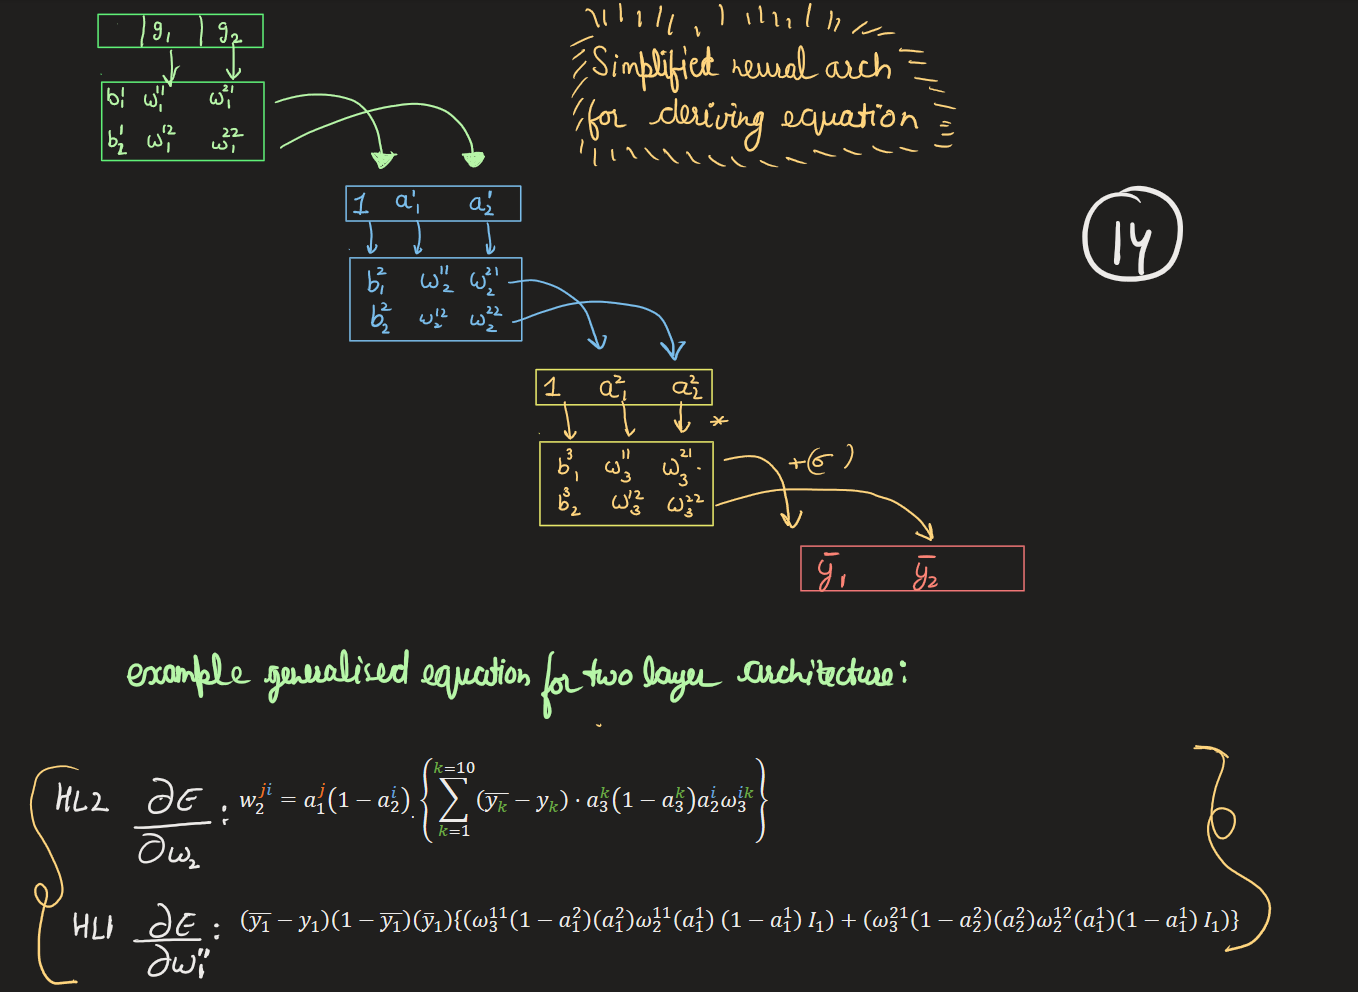 g₁ g₂
Simplified neural arch
for deriving equation
b₁¹ ω₁¹¹ ω₁²¹
b₂¹ ω₁¹² ω₁²²
14
1 a₁¹ a₂¹
b₁² ω₂¹¹ ω₂²¹
b₂² ω₂¹² ω₂²²
1 a₁² a₂²
*
b₁³ ω₃¹¹ ω₃²¹
b₂³ ω₃¹² ω₃²²
+(σ)
ȳ₁ ȳ₂
example generalised equation for two layer architecture:
HL2 ∂E/∂ω₂ : w₂ʲⁱ = a₁ʲ(1 − a₂ⁱ). {∑ₖ₌₁ᵏ⁼¹⁰ (ȳₖ − yₖ) · a₃ᵏ(1 − a₃ᵏ)a₂ⁱω₃ⁱᵏ}
HL1 ∂E/∂ω₁¹¹ : (ȳ₁ − y₁)(1 − ȳ₁)(ȳ₁){(ω₃¹¹(1 − a₁²)(a₁²)ω₂¹¹(a₁¹) (1 − a₁¹) I₁) + (ω₃²¹(1 − a₂²)(a₂²)ω₂¹²(a₁¹)(1 − a₁¹) I₁)}